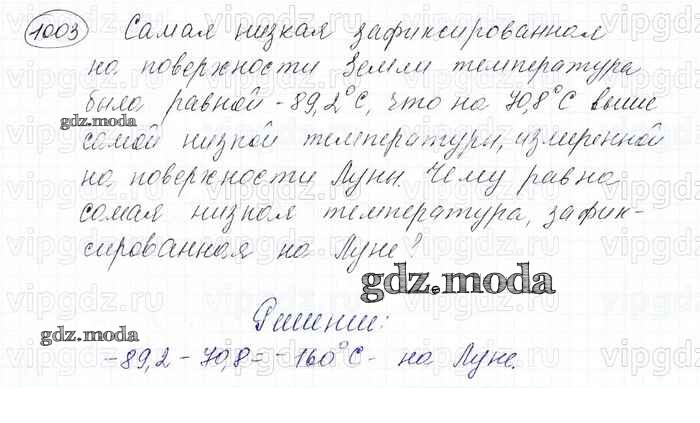 1003 Самая низкая зафиксированная
на поверхности Земли температура
была равной -89,2°С, что на 70,8°С выше
gdz.moda
самой низкой температуры, измеренной
на поверхности Луны. Чему равна
самая низкая температура, зафик-
сированная на Луне?
gdz.moda
Решение:
gdz.moda
-89,2-70,8=-160°С- на Луне.
vipgdz.ru